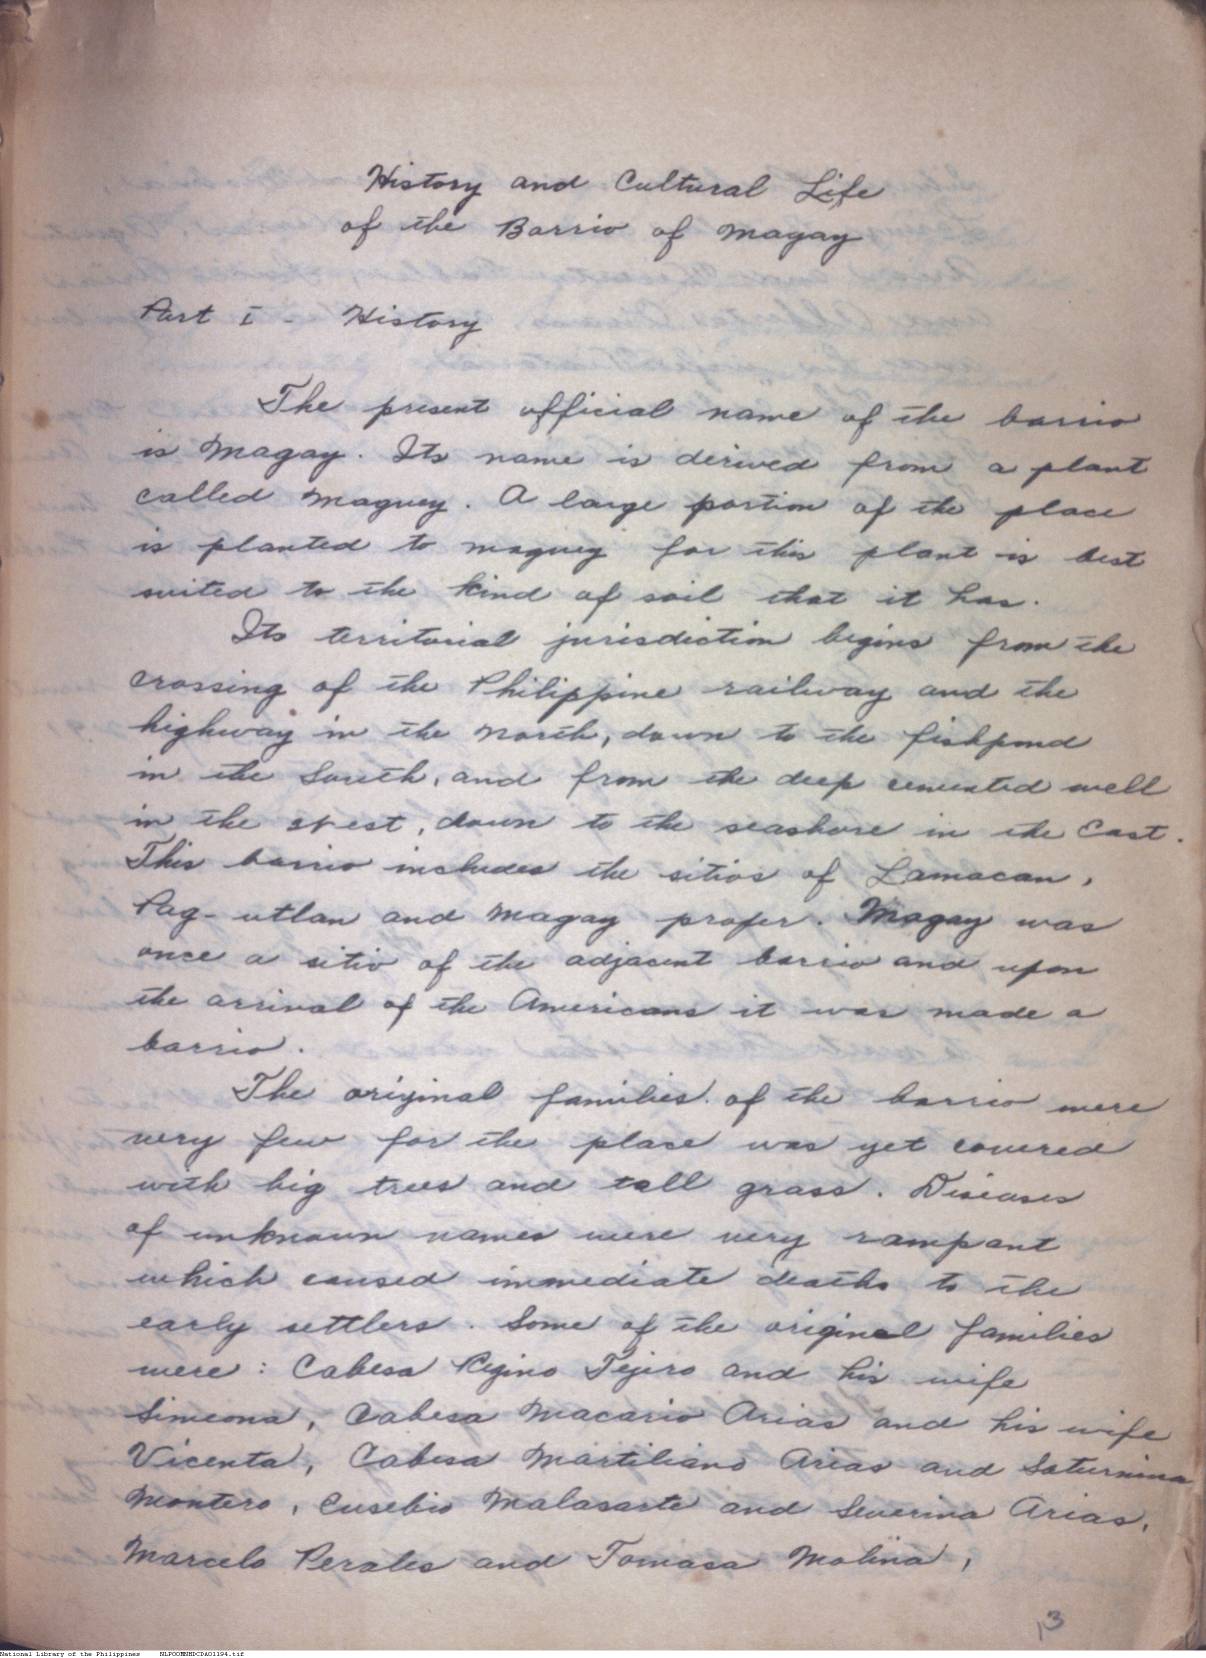 History and Cultural Life
of the Barrio of Magay
Part I - History
The present official name of the barrio
is Magay. Its name is derived from a plant
called Maguey. A large portion of the place
is planted to maguey for this plant is best
suited to the kind of soil that it has.
Its territorial jurisdiction begins from the
crossing of the Philippine railway and the
highway in the North, down to the fishpond
in the South, and from the deep cemented well
in the West, down to the seashore in the East.
This barrio includes the sitios of Lamacan,
Pag-utlan and Magay proper. Magay was
once a sitio of the adjacent barrio and upon
the arrival of the Americans it was made a
barrio.
The original families of the barrio were
very few for the place was yet covered
with big trees and tall grass. Diseases
of unknown names were very rampant
which caused immediate deaths to the
early settlers. Some of the original families
were: Cabesa Regino Tejero and his wife
Simeona, Cabesa Macario Arias and his wife
Vicenta, Cabesa Martiliano Arias and Saturnina
Montero, Eusebio Malasarte and Severina Arias,
Marcelo Perales and Tomasa Molina,
13
National Library of the Philippines NLPOOMNHDCDA01194.tif